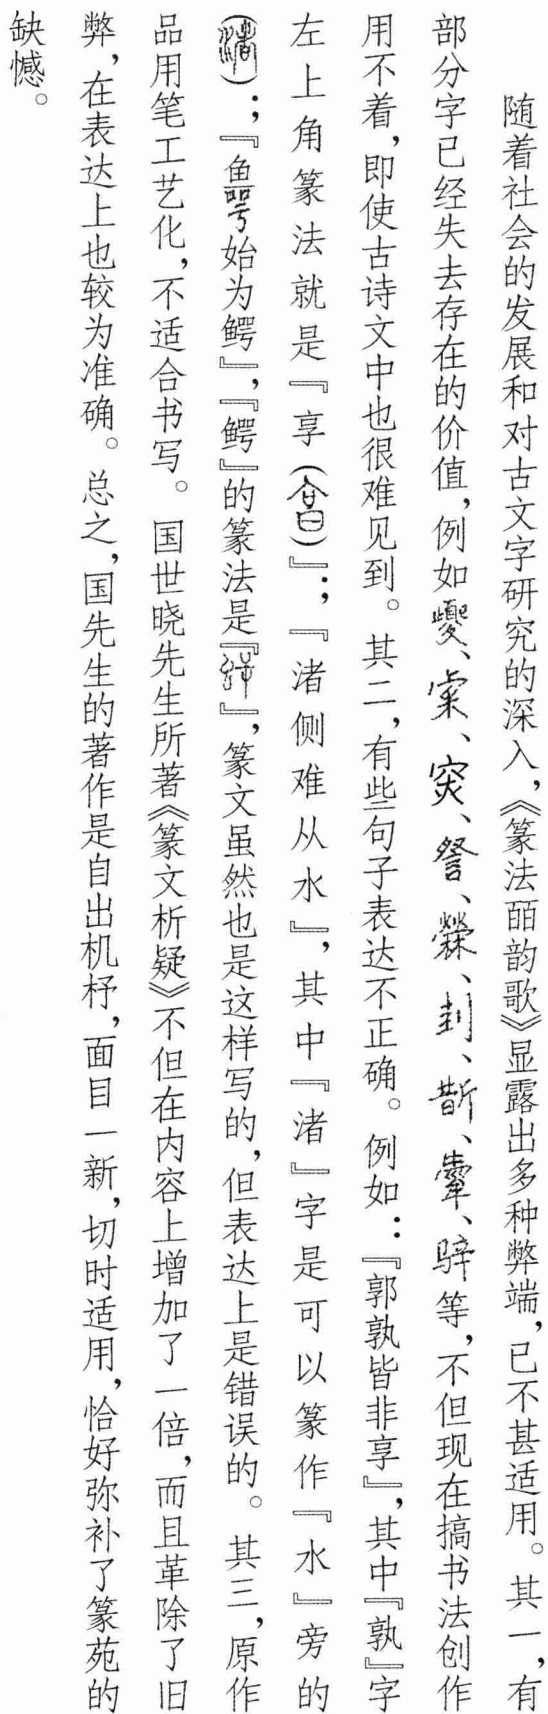 随着社会的发展和对古文字研究的深入，《篆法皕韵歌》显露出多种弊端，已不甚适用。其一，有
部分字已经失去存在的价值，例如、、、、、、、、等，不但现在搞书法创作
用不着，即使古诗文中也很难见到。其二，有些句子表达不正确。例如：『郭孰皆非享』，其中『孰』字
左上角篆法就是『享（）』；『渚侧难从水』，其中『渚』字是可以篆作『水』旁的
（）；『鱼咢始为鳄』，『鳄』的篆法是『』，篆文虽然也是这样写的，但表达上是错误的。其三，原作
品用笔工艺化，不适合书写。国世晓先生所著《篆文析疑》不但在内容上增加了一倍，而且革除了旧
弊，在表达上也较为准确。总之，国先生的著作是自出机杼，面目一新，切时适用，恰好弥补了篆苑的
缺憾。